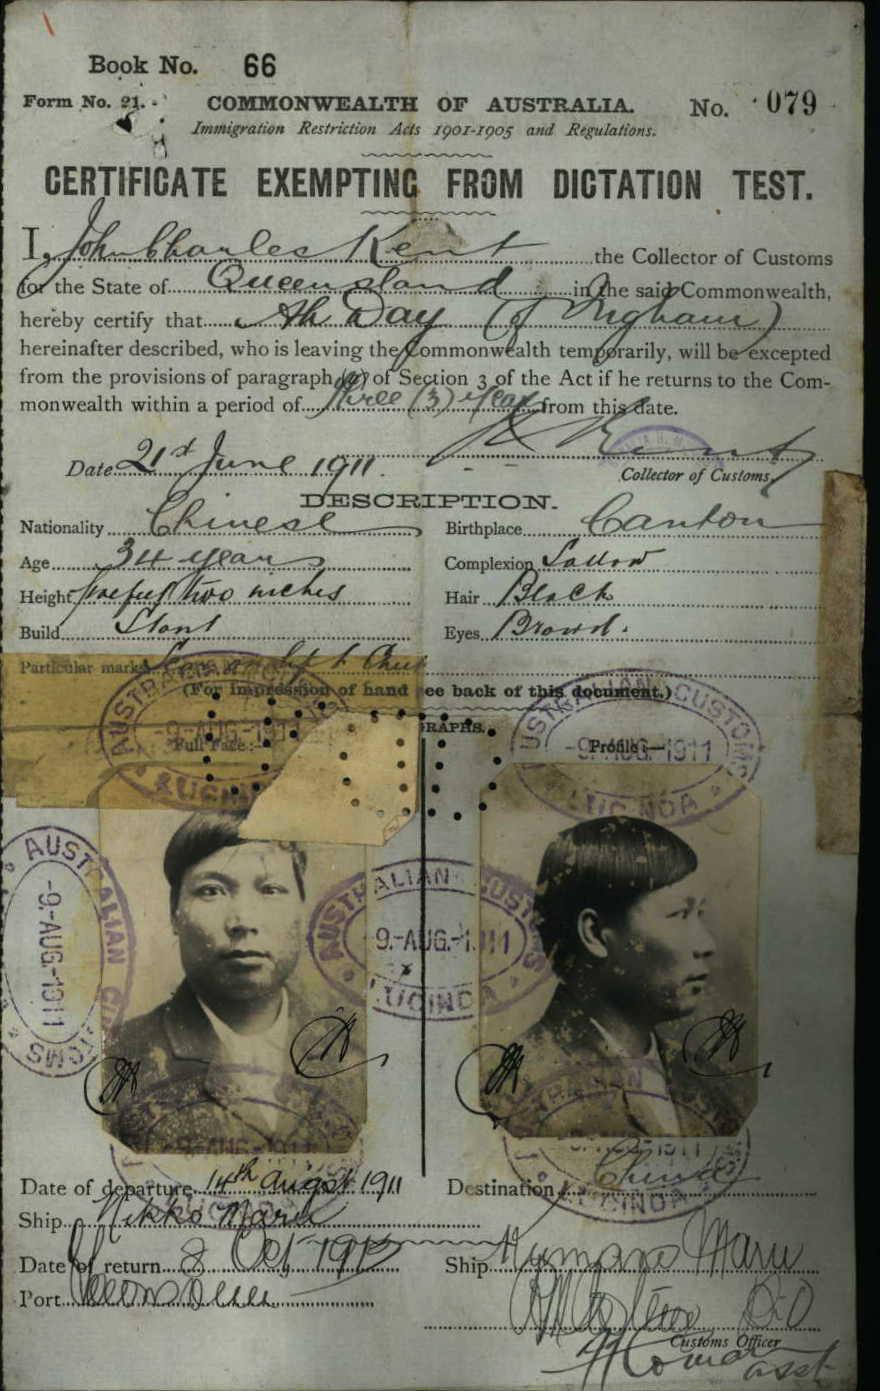 Book No. 66
Form No. 21. COMMONWEALTH OF AUSTRALIA. No. 079
Immigration Restriction Acts 1901-1905 and Regulations.
CERTIFICATE EXEMPTING FROM DICTATION TEST.
I, John Charles Kent the Collector of Customs
for the State of Queensland in the said Commonwealth,
hereby certify that Ah Day (of Ingham)
hereinafter described, who is leaving the Commonwealth temporarily, will be excepted
from the provisions of paragraph of Section 3 of the Act if he returns to the Com-
monwealth within a period of three (3) years from this date.
Date 21st June 1911.
Collector of Customs.
DESCRIPTION.
Nationality Chinese Birthplace Canton
Age 34 years Complexion Sallow
Height five feet two inches Hair Black
Build Stout Eyes Brown.
Particular marks Scar on left
(For impression of hand see back of this document.)
GRAPHS.
Full Face:— Profile:—
AUSTRALIAN CUSTOMS
-9.-AUG.-1911
LUCINDA
AUSTRALIAN CUSTOMS
-9.-AUG.-1911
LUCINDA
AUSTRALIAN CUSTOMS
-9.-AUG.-1911
AUSTRALIAN CUSTOMS
9.-AUG.-1911
LUCINDA
-9.-AUG-1911
Date of departure 14th August 1911 Destination China
Ship Nikko Maru
Date of return 8 Oct 1912 Ship Kumano Maru
Port
Customs Officer